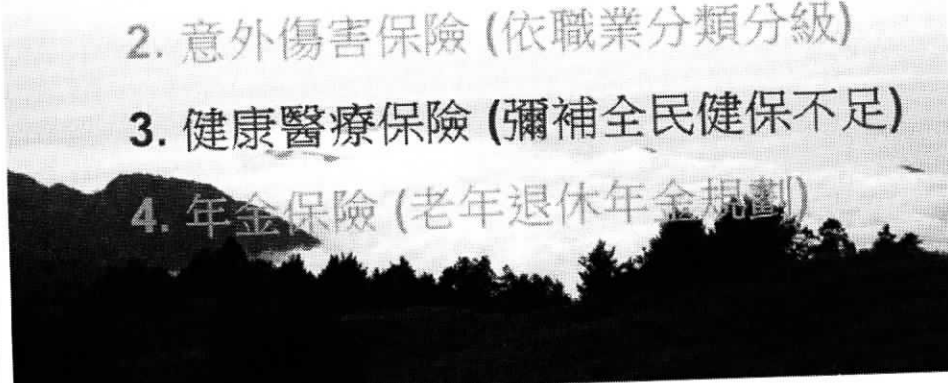 2. 意外傷害保險 (依職業分類分級)
3. 健康醫療保險 (彌補全民健保不足)
4. 年金保險 (老年退休年金規劃)